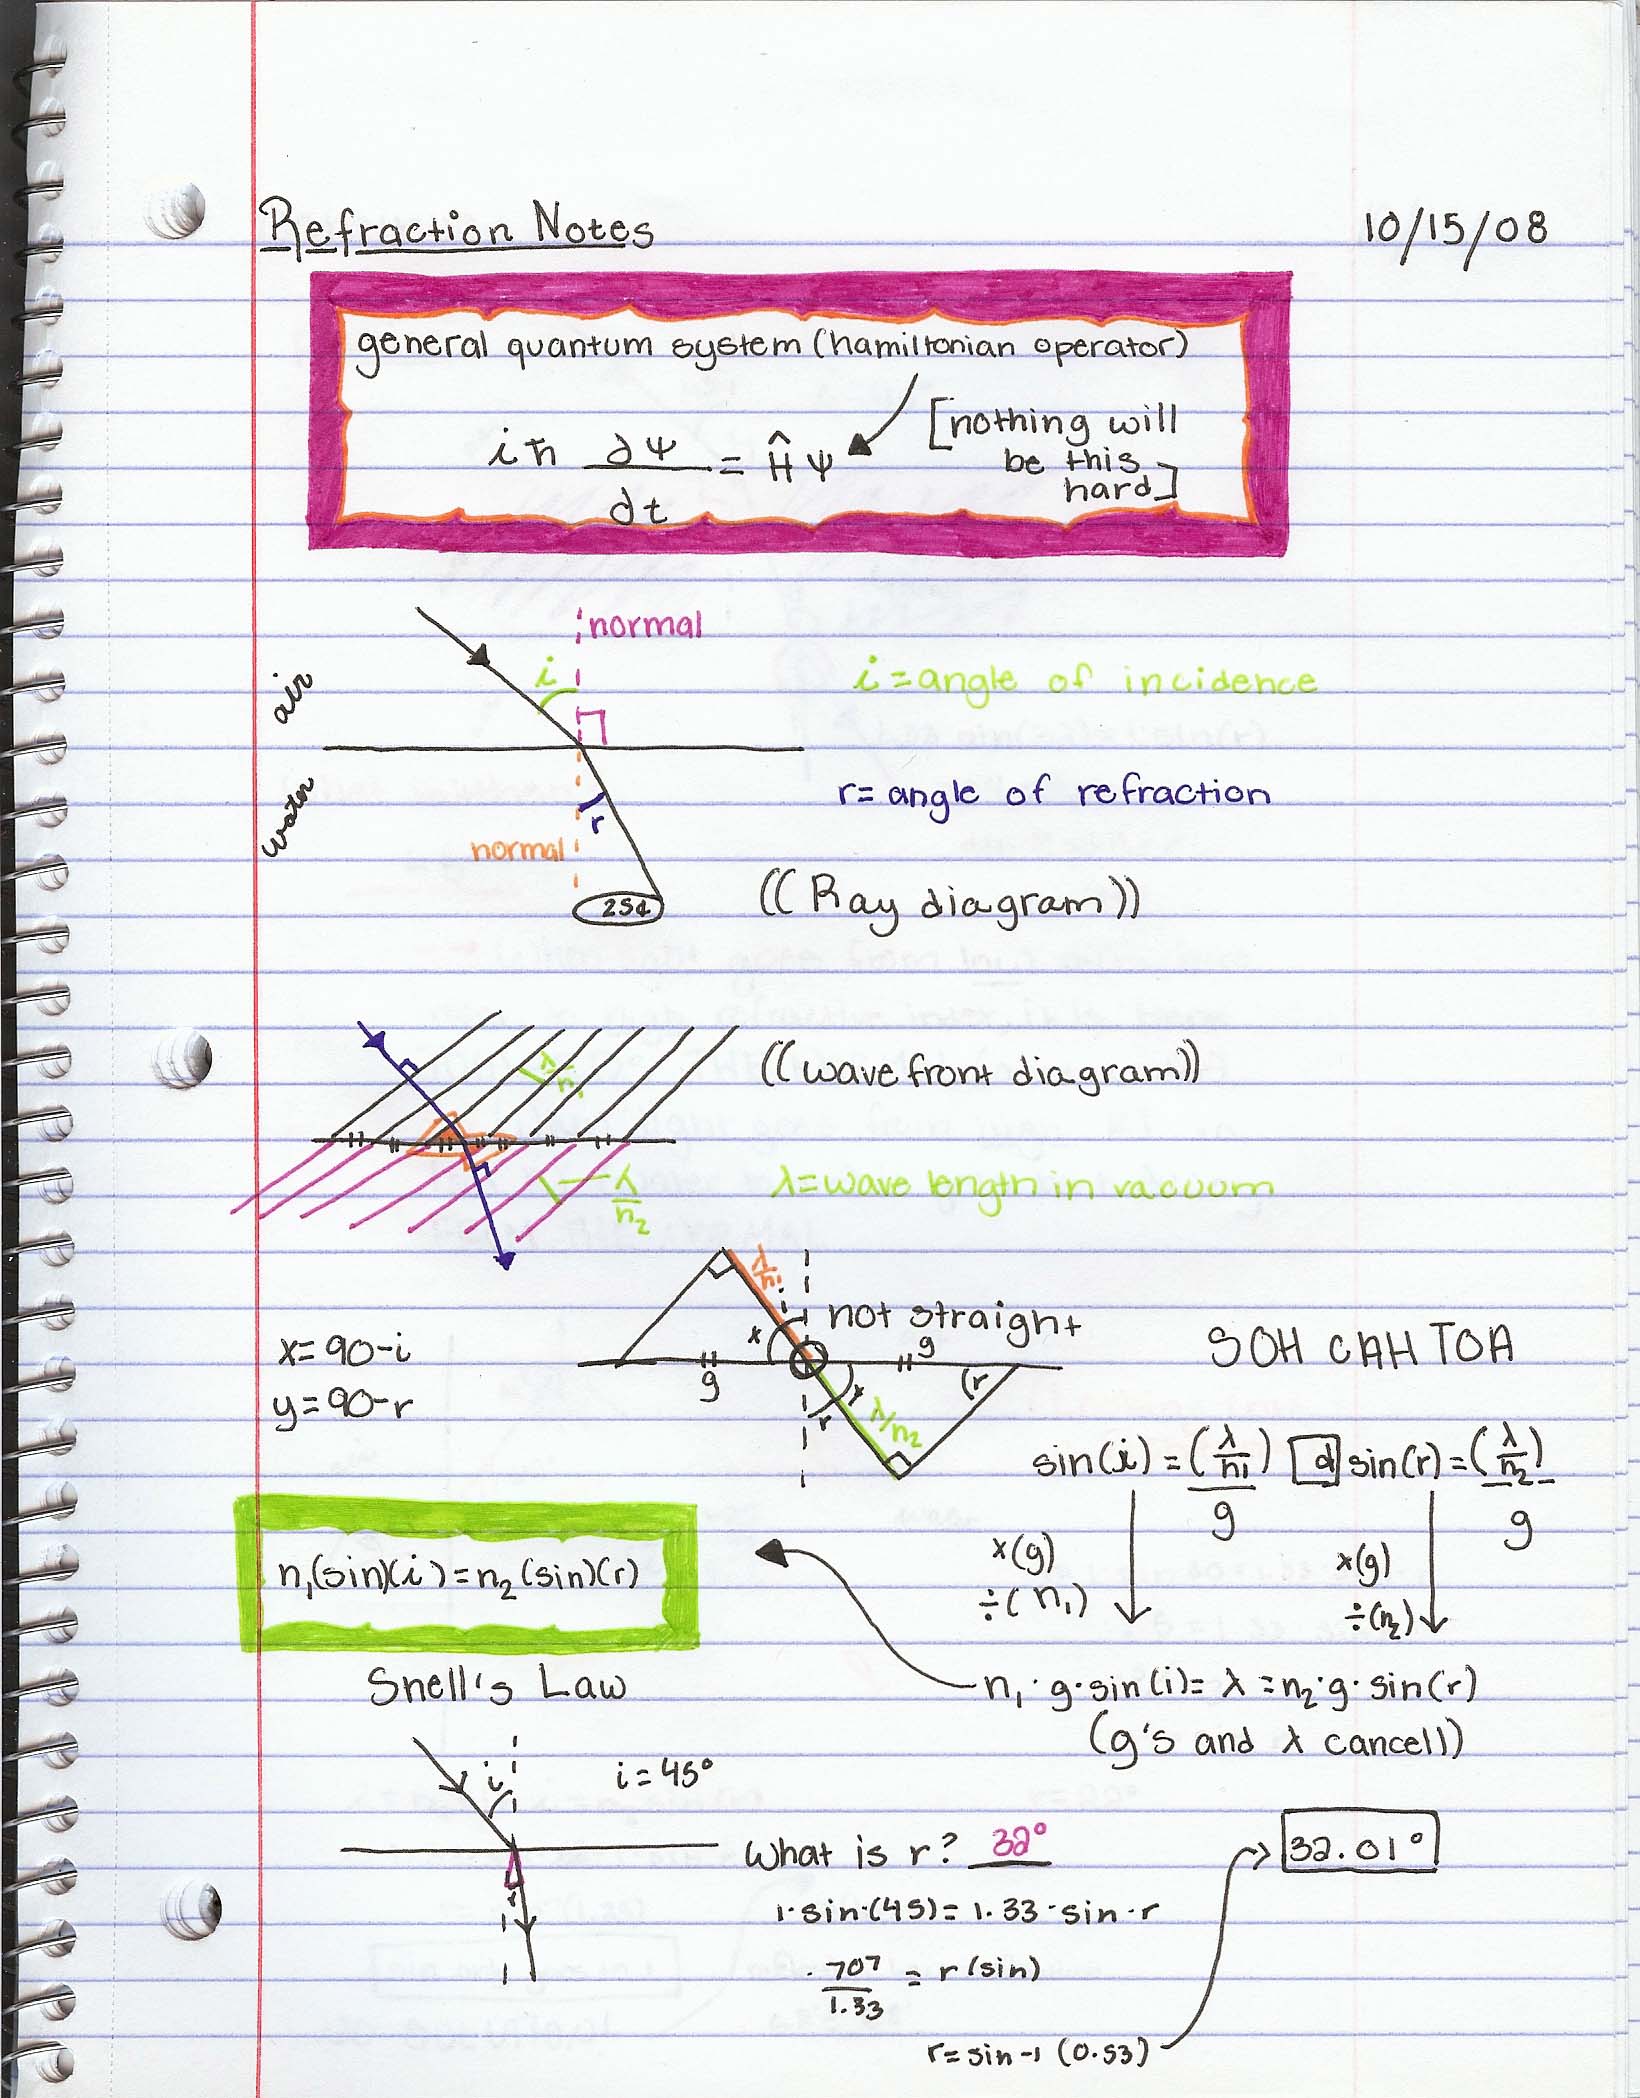 Refraction Notes 10/15/08
general quantum system (hamiltonian operator)
iħ ∂Ψ/∂t = ĤΨ
[nothing will
be this
hard]
normal
i
air
i = angle of incidence
water
r = angle of refraction
r
normal
25¢
((Ray diagram))
((wave front diagram))
λ/n₁
λ/n₂
λ = wave length in vacuum
λ/n₁
i
x
not straight
g
g
(r
x
r
λ/n₂
x = 90-i
y = 90-r
SOH CAH TOA
sin(i) = (λ/n₁)/g d sin(r) = (λ/n₂)/g
x(g)
÷(n₁)
x(g)
÷(n₂)
n₁(sin)(i) = n₂(sin)(r)
Snell's Law
n₁·g·sin(i) = λ = n₂·g·sin(r)
(g's and λ cancell)
i
i = 45°
r
What is r? 32°
32.01°
1·sin·(45) = 1.33·sin·r
.707/1.33 = r(sin)
r = sin-1 (0.53)